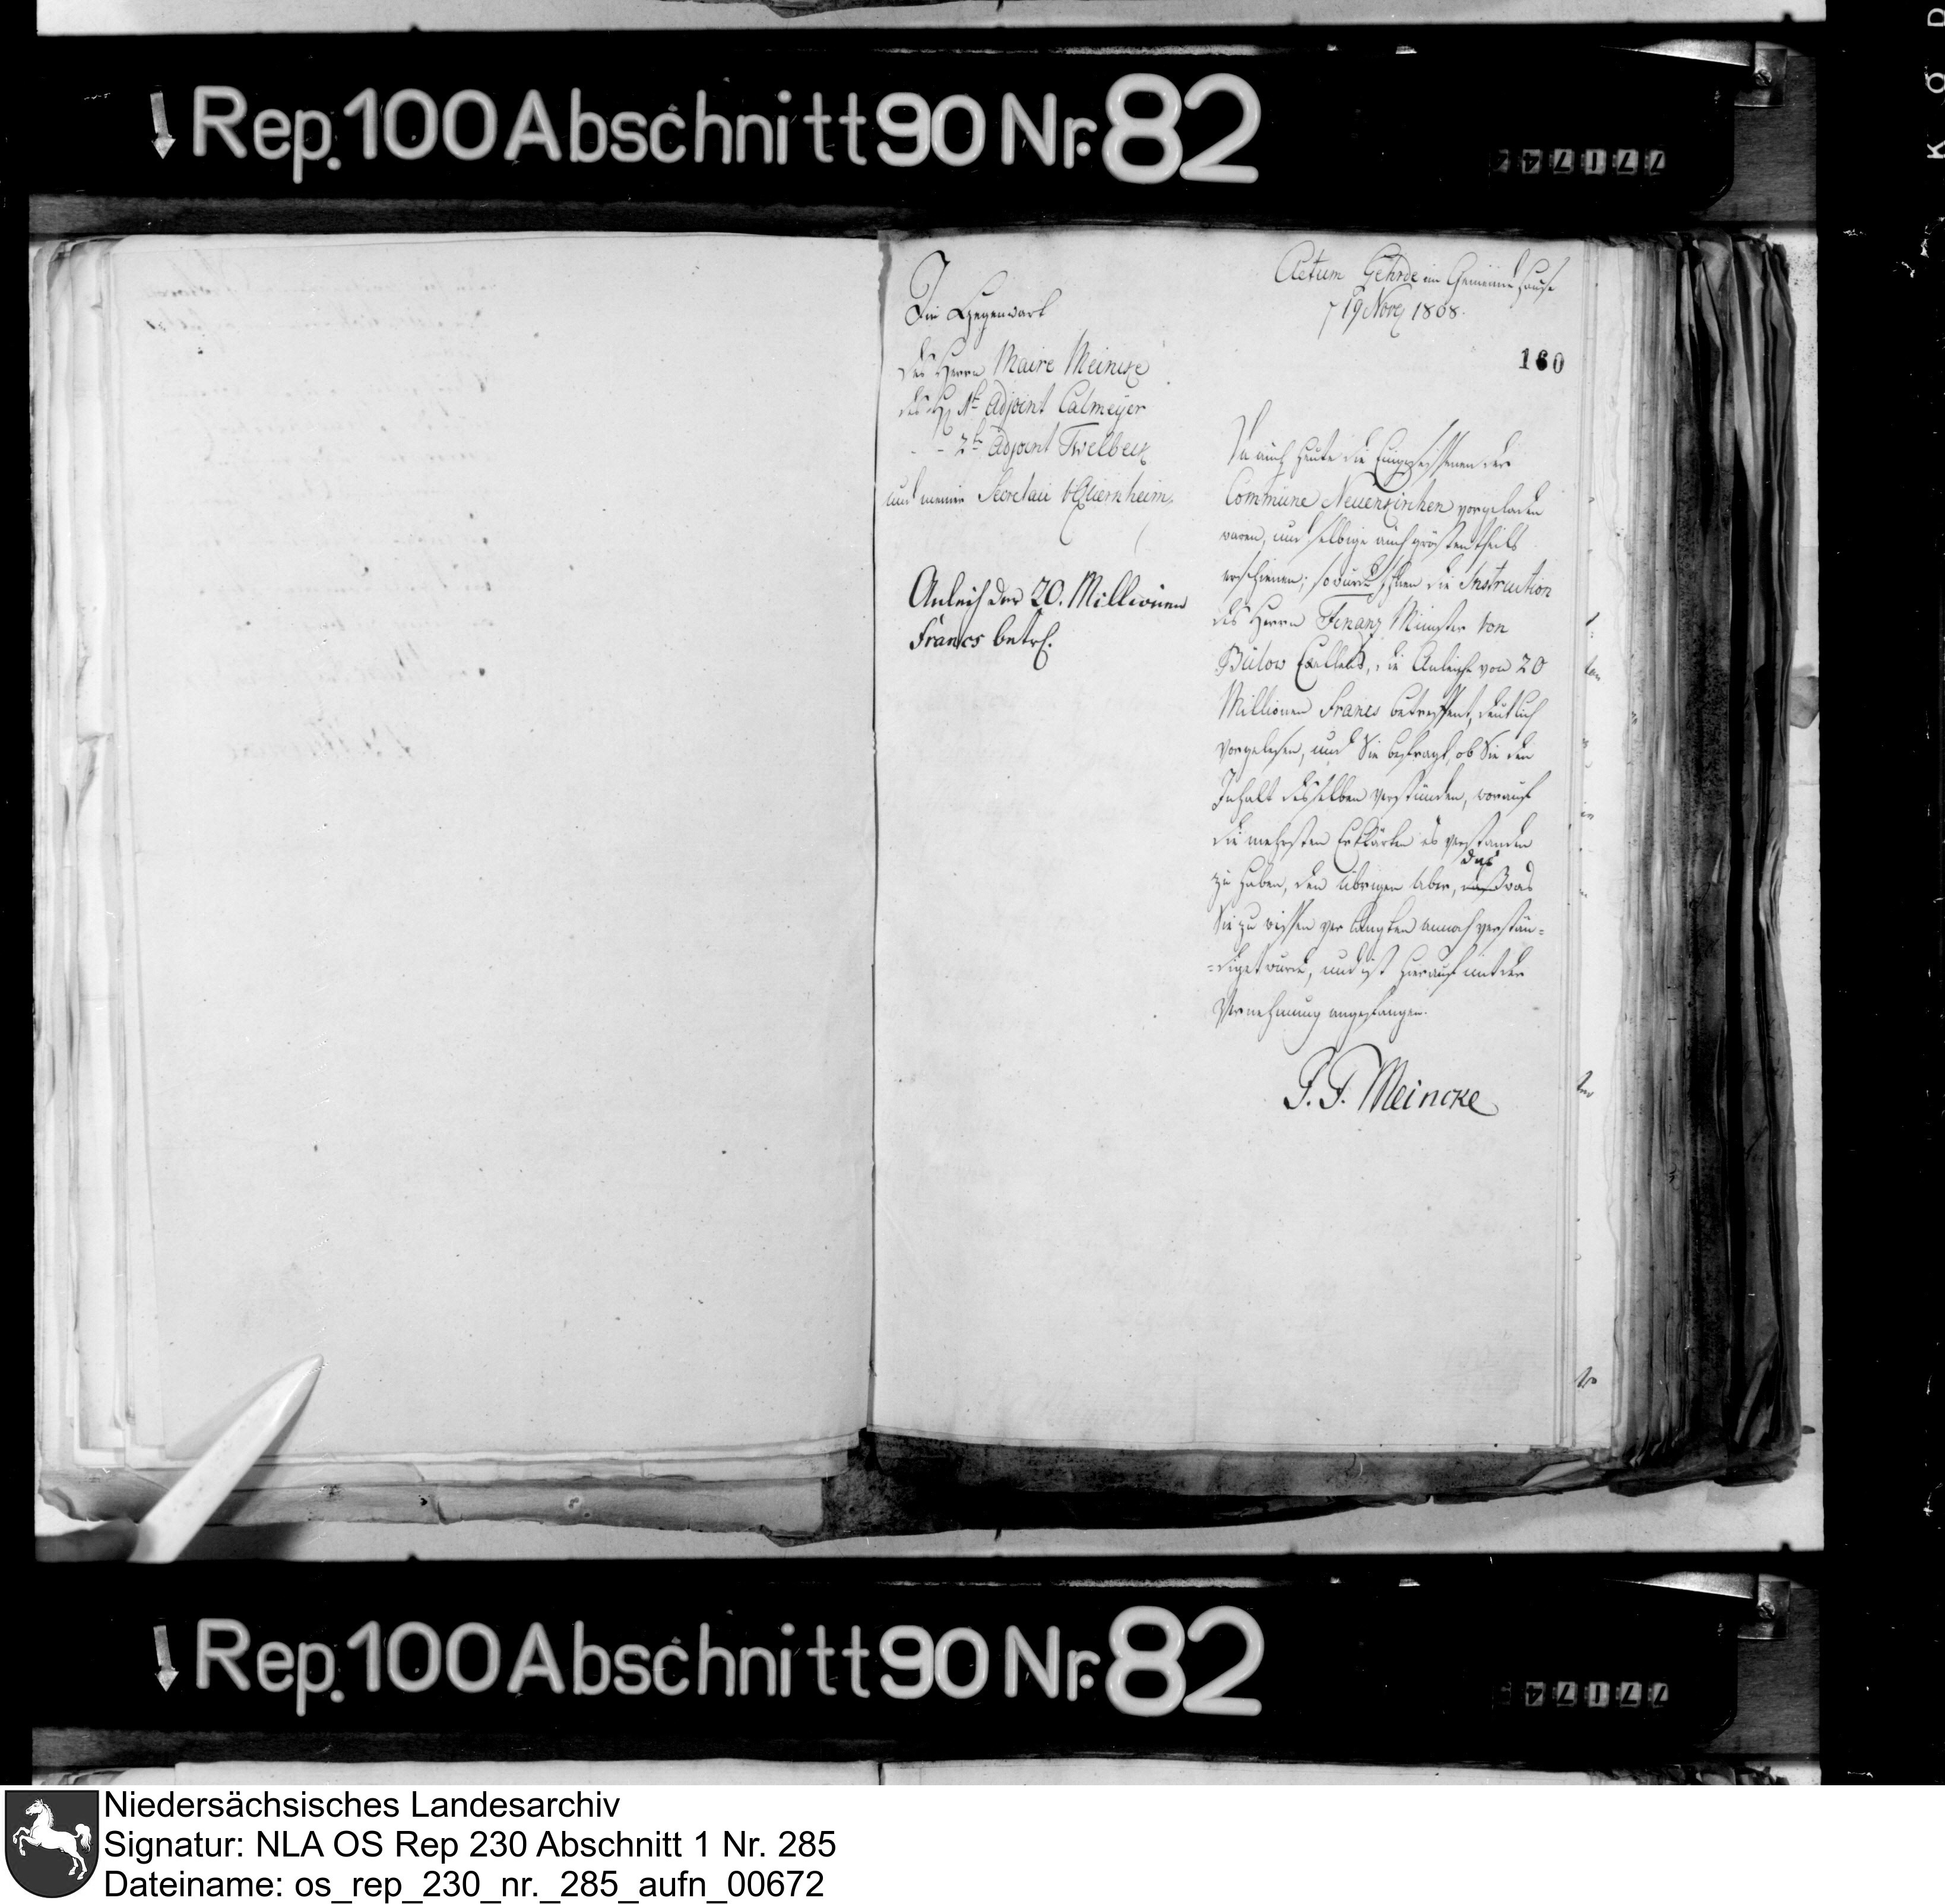 Rep. 100 Abschnitt 90 Nr. 82
Actum Gehrde im Gemeinde Hause
19 Nov 1808.
160
In Gegenwart
des Herrn Maire Meincke
des H 1t Adjoint Calmeyer
- - 2tn Adjoint Twelbeck
und meiner Secretair v Quernheim
Anleih der 20. Millionen
Francs betrf.
Da auch heute die Eingesessenen der
Commune Neuenkirchen vorgeladen
waren, und selbige auch größtentheils
erschienen; so wurde Ihnen die Instruction
des Herrn Finanz Minister von
Bülow Excellens, die Anleihe von 20
Millionen Francs betreffent, deutlich
vorgelesen, und Sie befragt, ob Sie den
Inhalt desselben verstünden, worauf
die mehrsten Erklärten es verstanden
zu haben, den übrigen Aber, das was
Sie zu wissen verlangten annoch verstän=
=diget wurde, und ist hierauf mit der
Vernehmung angefangen.
P. F. Meincke
Rep. 100 Abschnitt 90 Nr. 82
Niedersächsisches Landesarchiv
Signatur: NLA OS Rep 230 Abschnitt 1 Nr. 285
Dateiname: os_rep_230_nr._285_aufn_00672